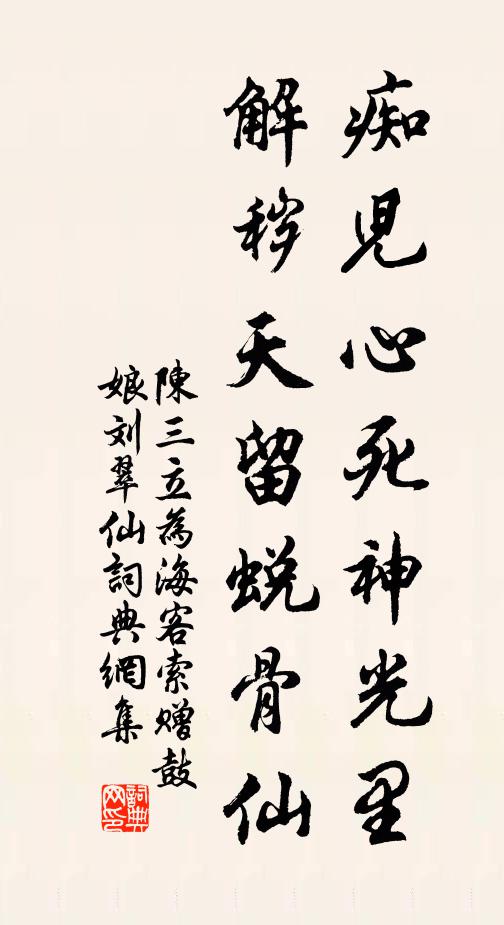 痴児心死神光里
解秽天留蜕骨仙
陳三立為海客索赠鼓
娘刘翠仙詞典網集
詞典网印